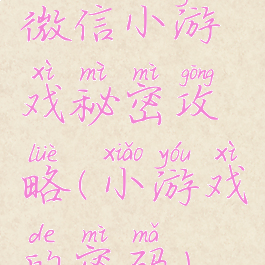 微信小游
xì mì mì gōng
戏秘密攻
lüè xiǎo yóu xì
略(小游戏
de mì mǎ
的密码)